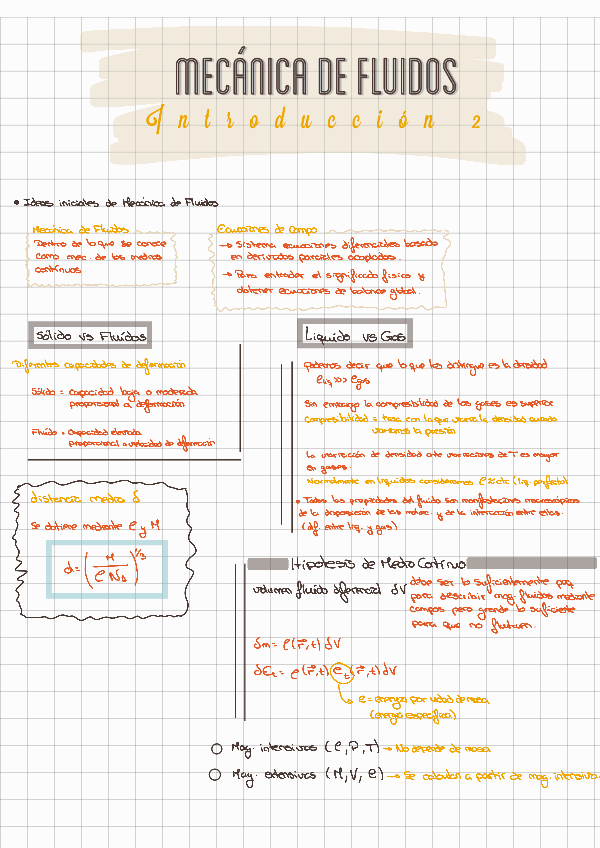 MECÁNICA DE FLUIDOS
Introducción 2
• Ideas iniciales de Mecánica de Fluidos
Mecánica de Fluidos
Dentro de lo que se conoce
como mec. de los medios
continuos
Ecuaciones de Campo
→ Sistema ecuaciones diferenciales basado
en derivadas parciales acopladas.
→ Para entender el significado físico y
obtener ecuaciones de balance global.
Sólido vs Fluidos
Diferentes capacidades de deformación
Sólido = capacidad baja o moderada
proporcional a deformación
Fluido = Capacidad elevada
proporcional a velocidad de deformación
distancia media d
Se obtiene mediante ρ y M
d = (M / ρ NA)^1/3
Líquido vs Gas
Podemos decir que lo que les distingue es la densidad
ρliq >>> ρgas
Sin embargo la compresibilidad de los gases es superior
Compresibilidad = tasa con la que varía la densidad cuando
variamos la presión
La variación de densidad ante variaciones de T es mayor
en gases.
Normalmente en líquidos consideramos ρ ≈ cte (liq. perfecto)
• Todas las propiedades del fluido son manifestaciones macroscópicas
de la disposición de las molec. y de la interacción entre ellas.
(dif. entre liq. y gas)
Hipótesis de Medio Continuo
volumen fluido diferencial δV debe ser lo suficientemente peq.
para describir mag. fluidas mediante
campos pero grande lo suficiente
para que no fluctúen.
δm = ρ(r⃗,t) δV
δEt = ρ(r⃗,t) et (r⃗,t) δV
e = energía por unidad de masa
(energía específica)
○ Mag. intensivas (ρ, P, T) → No depende de masa
○ Mag. extensivas (M, V, e) → Se calculan a partir de mag. intensiva